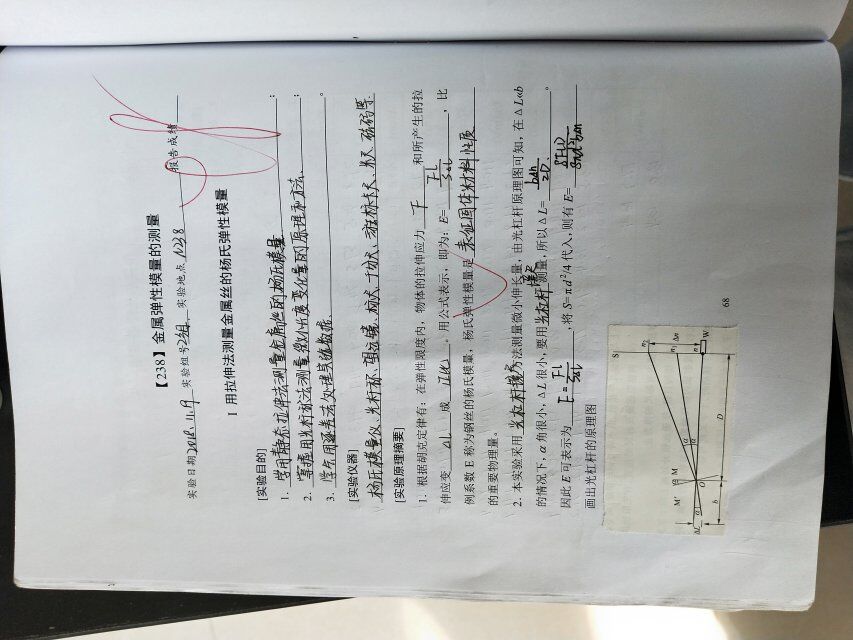 【238】金属弹性模量的测量
实验日期2018.11.9 实验组号2组 实验地点 A238 报告成绩
I 用拉伸法测量金属丝的杨氏弹性模量
[实验目的]
1. 学用静态拉伸法测量金属丝的杨氏模量;
2. 掌握用光杆法测量微小长度变化量的原理和方法;
3. 学会用逐差法处理实验数据。
[实验仪器]
杨氏模量仪、光杆杯、望远镜、标尺、千分尺、游标卡尺、米尺、砝码等
[实验原理摘要]
1. 根据胡克定律有: 在弹性限度内, 物体的拉伸应力 F 和所产生的拉
伸应变 ΔL 成 正比 。用公式表示, 即为: E= FL/SΔL , 比
例系数 E 称为钢丝的杨氏模量, 杨氏弹性模量是 表征固体材料性质
的重要物理量。
2. 本实验采用 光杠杆放大 方法测量微小伸长量, 由光杠杆原理图可知, 在 ΔL≪b
的情况下, α 角很小, ΔL 很小, 要用 光杠杆 测量, 所以 ΔL= bΔn/2D 。
因此 E 可表示为 E=FL/SΔL , 将 S=πd²/4 代入, 则有 E= 8FLD/Sπd²bΔn
画出光杠杆的原理图
S n₂ Δn n₁ W
M M' O α D b ΔL
68